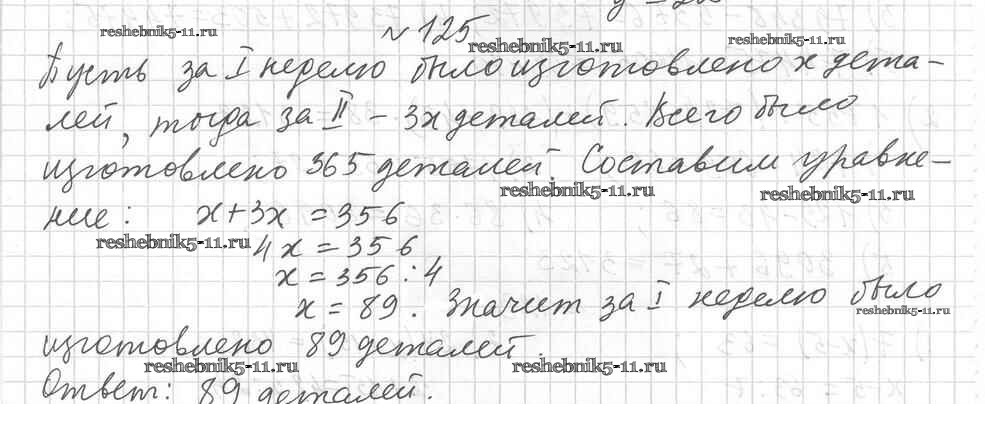 №125
Пусть за I неделю было изготовлено x дета-
лей, тогда за II – 3x деталей. Всего было
изготовлено 365 деталей. Составим уравне-
ние: x+3x=356
4x=356
x=356:4
x=89. Значит за I неделю было
изготовлено 89 деталей.
Ответ: 89 деталей.
reshebnik5-11.ru
reshebnik5-11.ru
reshebnik5-11.ru
reshebnik5-11.ru
reshebnik5-11.ru
reshebnik5-11.ru
reshebnik5-11.ru
reshebnik5-11.ru
reshebnik5-11.ru